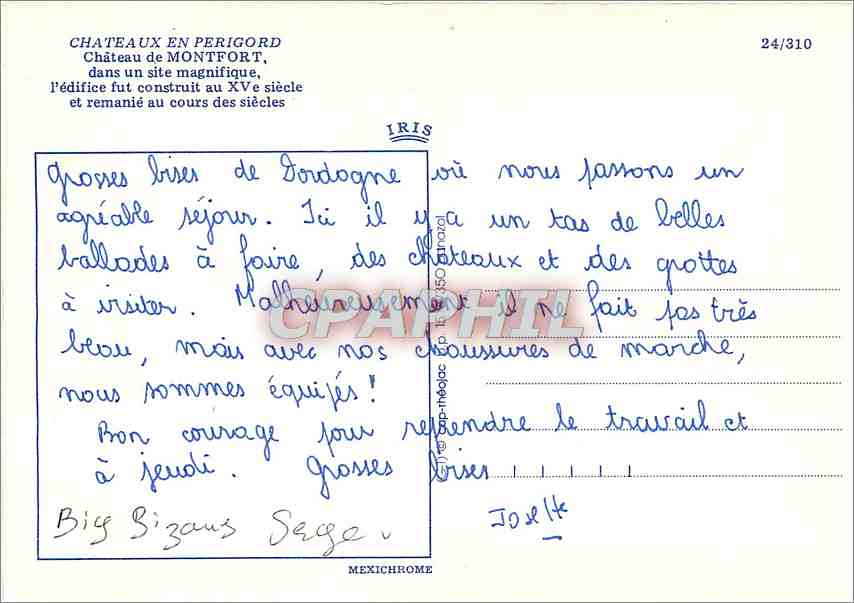 CHATEAUX EN PERIGORD
Château de MONTFORT,
dans un site magnifique,
l'édifice fut construit au XVe siècle
et remanié au cours des siècles
24/310
IRIS
Grosses bises de Dordogne où nous passons un
agréable séjour. Ici il y a un tas de belles
ballades à faire, des châteaux et des grottes
à visiter. Malheureusement il ne fait pas très
beau, mais avec nos chaussures de marche,
nous sommes équipés!
Bon courage pour reprendre le travail et
à jeudi. Grosses bises
Josette
Big Bizous Serge.
CPAPHIL
MEXICHROME